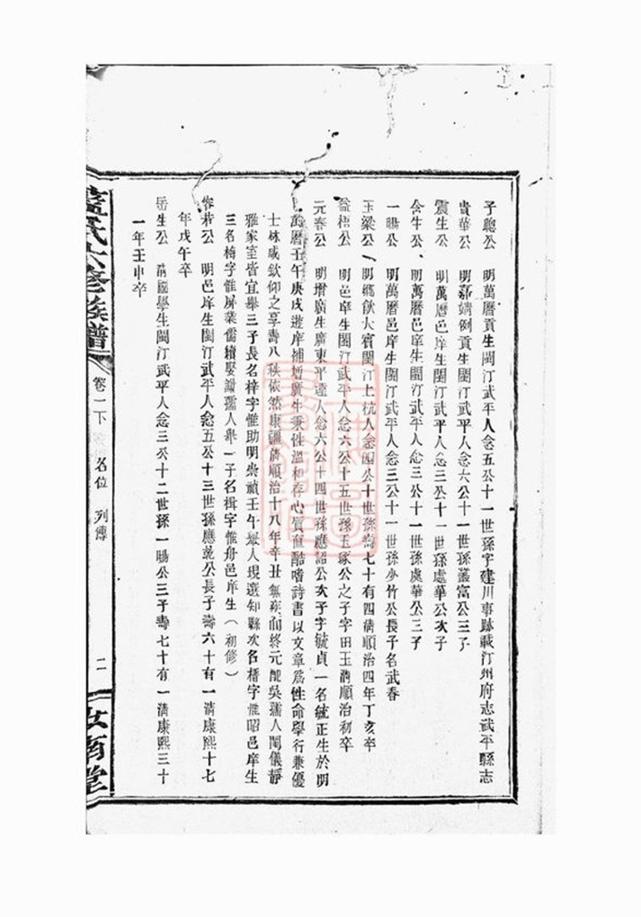 子聰公　明萬曆貢生閩汀武平人念五公十一世孫字建川事跡載汀州府志武平縣志
貴華公　明嘉靖例貢生閩汀武平人念六公十一世孫叢富公三子
震生公　明萬曆邑庠生閩汀武平人念三公十一世孫處華公次子
含生公　明萬曆邑庠生閩汀武平人念三公十一世孫處華公三子
一暘公　明萬曆邑庠生閩汀武平人念三公十一世孫少竹公長子名武春
玉梁公　明鄉飲大賓閩汀上杭人念四公十世孫壽七十有四清順治四年丁亥卒
益梧公　明邑庠生閩汀武平人念六公十五世孫玉琢公之子字田玉清順治初卒
元春公　明增廣生廣東平遠人念六公十四世孫應詔公次子字毓貞一名毓正生於明
萬曆壬午庚戌遊庠補增廣生秉性溫和存心質直酷嗜詩書以文章爲性命學行兼優
士林咸欽仰之享壽八秩依然康疆清順治十八年辛丑無疾而終元配吳孺人閫儀靜
雅家室皆宜舉三子長名梓字惟助明崇禎壬午舉人現選知縣次名楷字惟昭邑庠生
三名椅字惟屏業儒續娶謝孺人舉一子名楫字惟舟邑庠生（初修）
若公　明邑庠生閩汀武平人念五公十三世孫應乾公長子壽六十有一清康熙十七
年戊午卒
岳生公　清國學生閩汀武平人念三公十二世孫一暘公三子壽七十有一清康熙三十
一年壬申卒
藍氏六修族譜
卷一下
名位　列傳
二
汝南堂